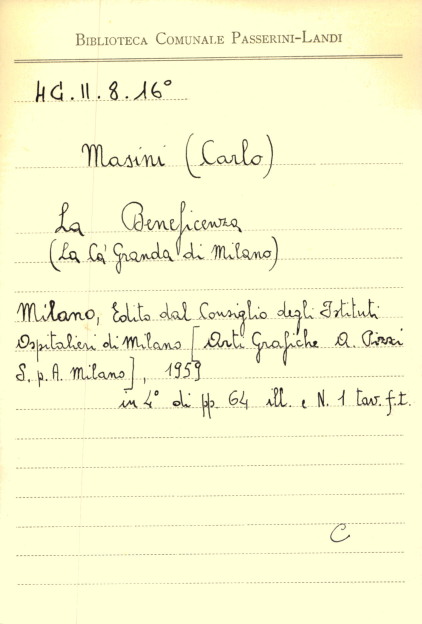 BIBLIOTECA COMUNALE PASSERINI-LANDI
4G.II.8.16°
Masini (Carlo)
La Beneficenza
(La Cà Granda di Milano)
Milano, Edito dal Consiglio degli Istituti
Ospitalieri di Milano [Arti Grafiche A. Pizzi
S.p.A. Milano], 1959
in 4° di pp. 64 ill. e N. 1 tav. f.t.
C